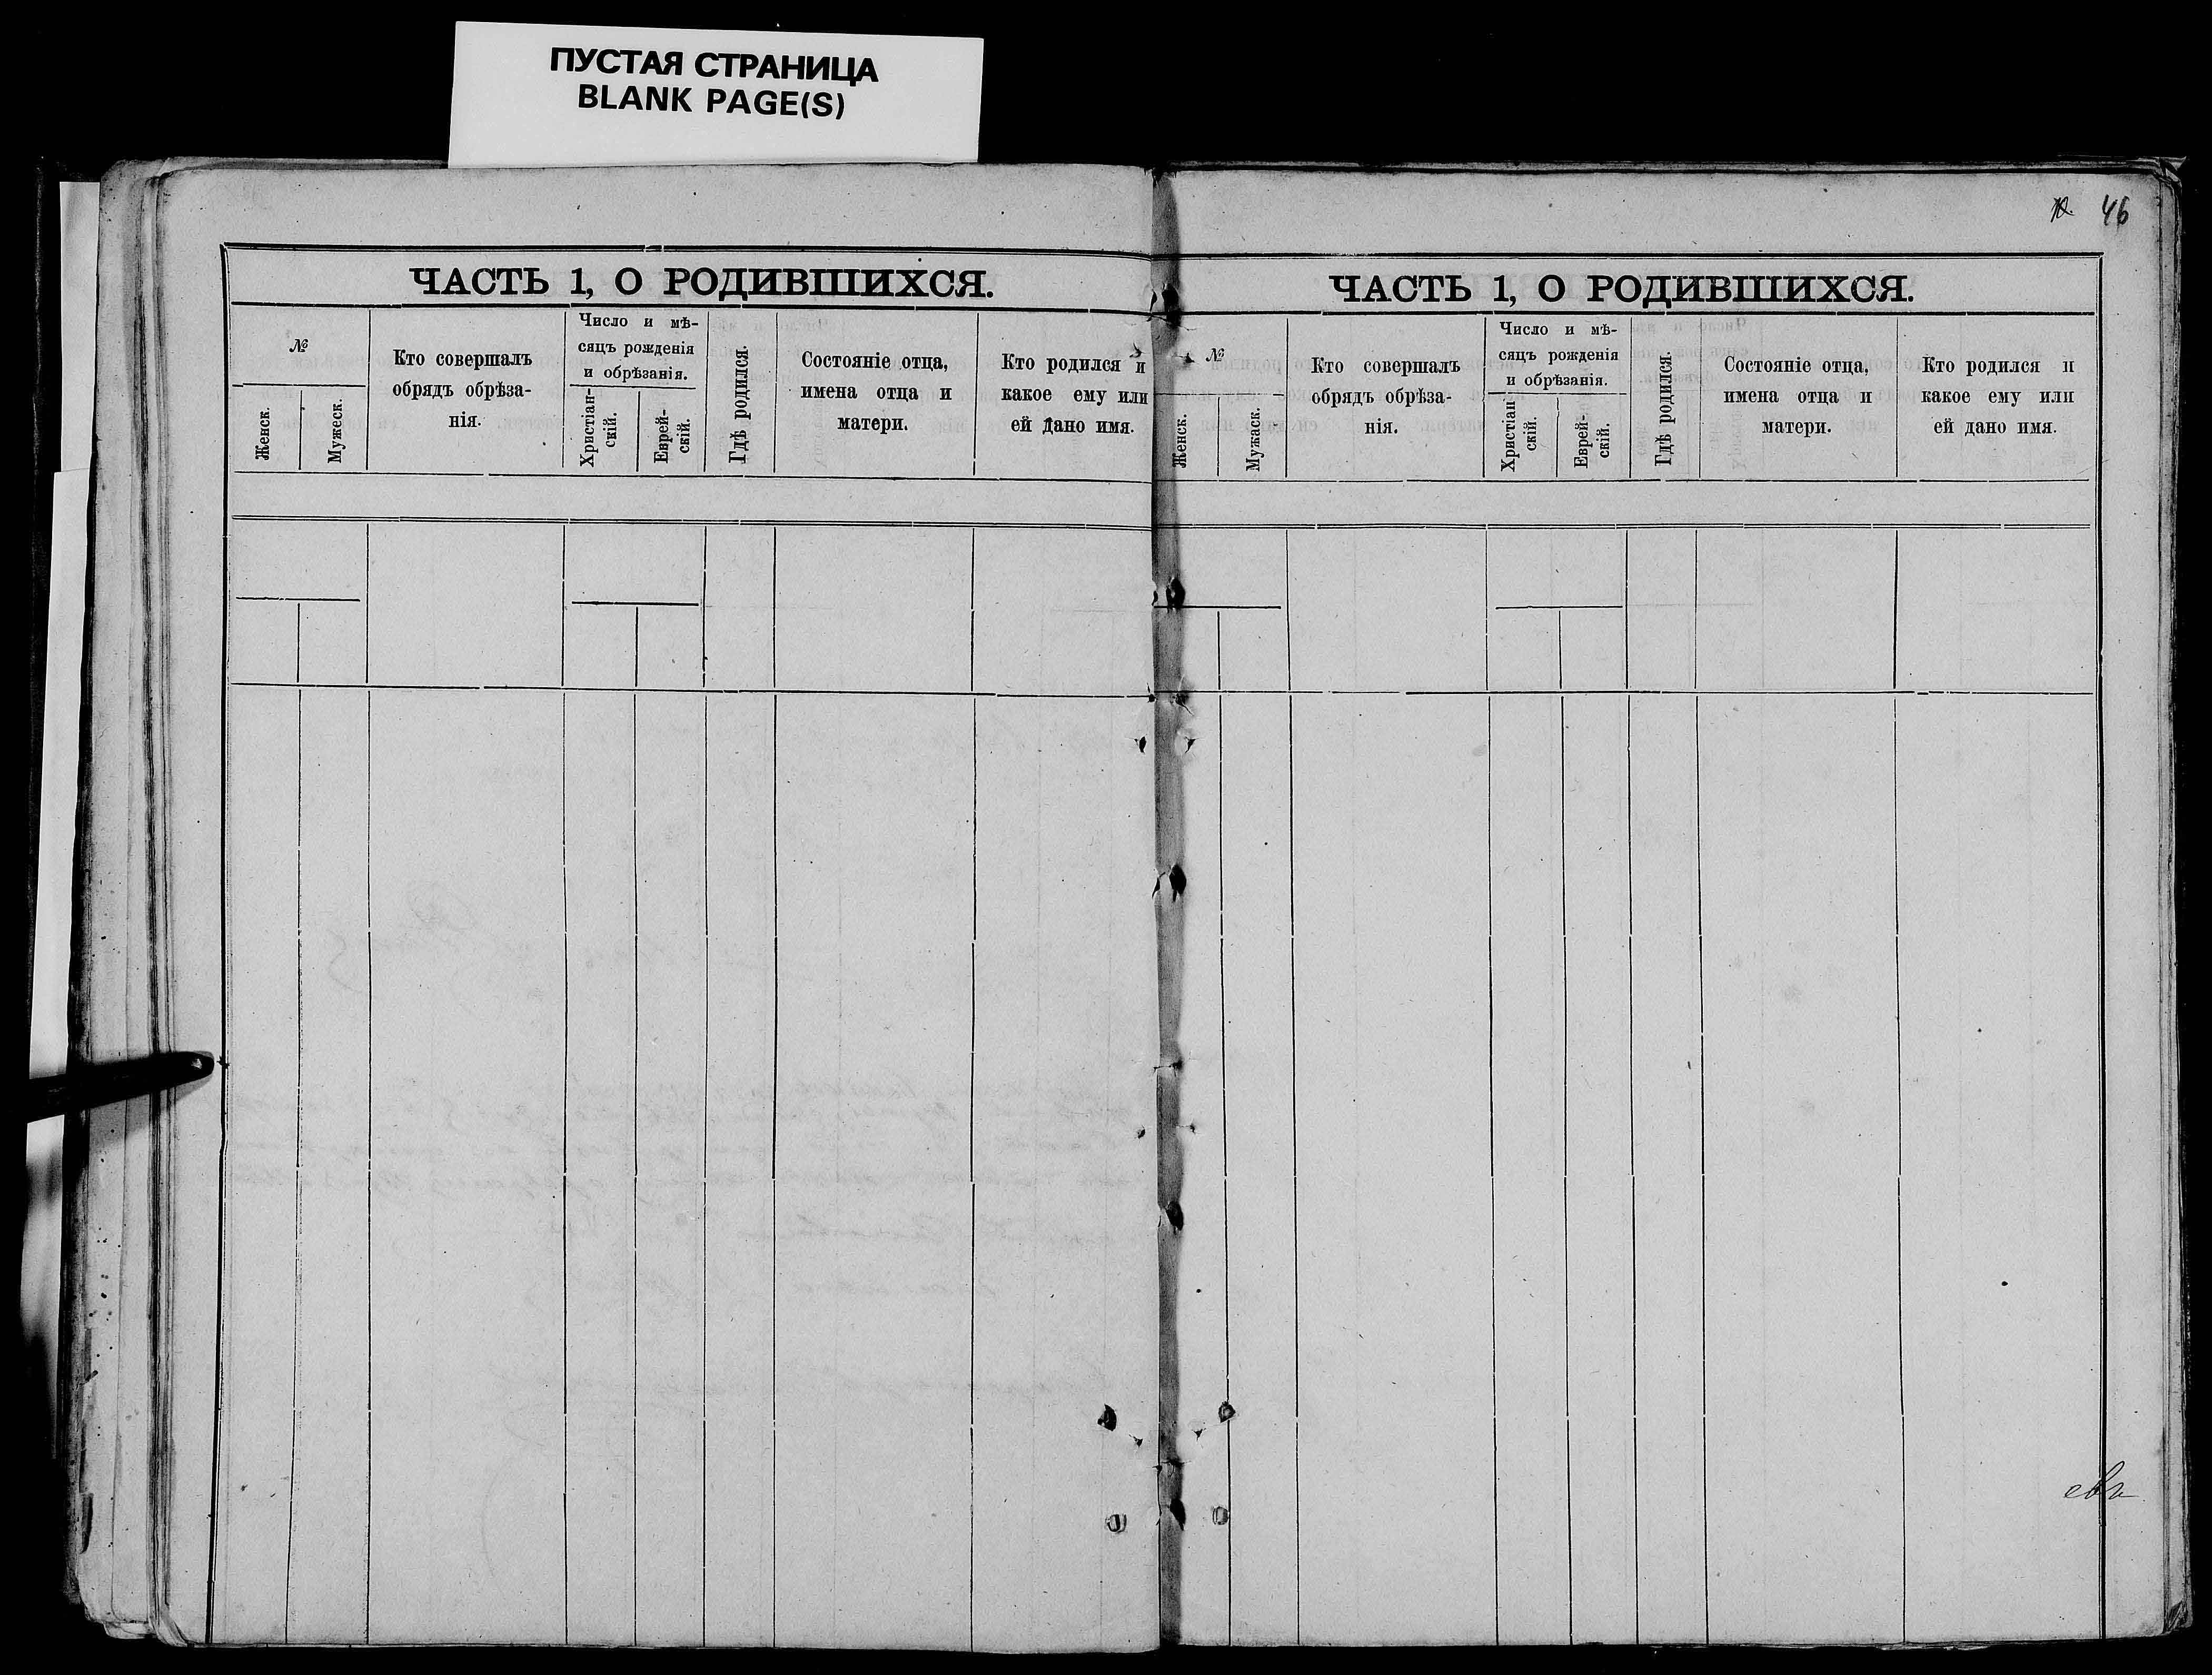 ПУСТАЯ СТРАНИЦА
BLANK PAGE(S)
46
ЧАСТЬ 1, О РОДИВШИХСЯ.
№
Женск.
Мужеск.
Кто совершалъ
обрядъ обрѣза-
нія.
Число и мѣ-
сяцъ рожденія
и обрѣзанія.
Христіан-
скій.
Еврей-
скій.
Гдѣ родился.
Состояніе отца,
имена отца и
матери.
Кто родился и
какое ему или
ей дано имя.
ЧАСТЬ 1, О РОДИВШИХСЯ.
№
Женск.
Мужаск.
Кто совершалъ
обрядъ обрѣза-
нія.
Число и мѣ-
сяцъ рожденія
и обрѣзанія.
Христіан
скій.
Еврей-
скій.
Гдѣ родился.
Состояніе отца,
имена отца и
матери.
Кто родился и
какое ему или
ей дано имя.